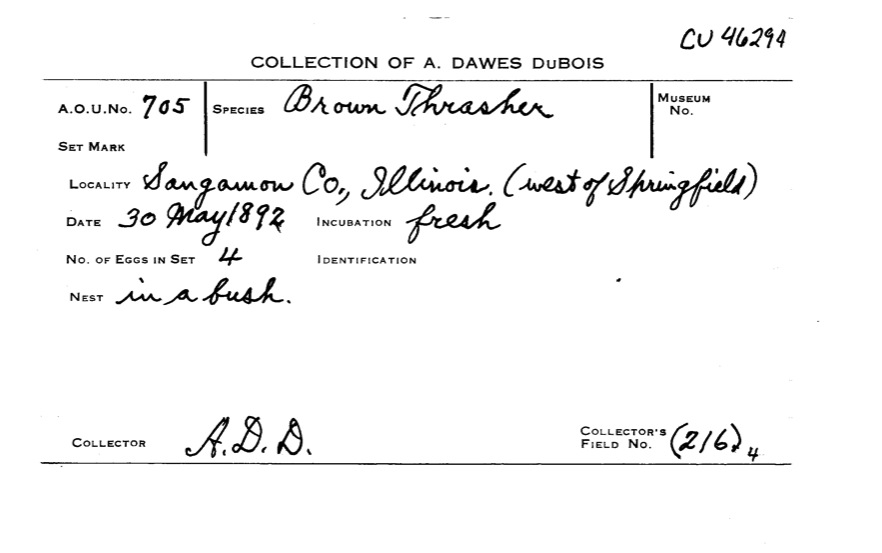 CU 46294
COLLECTION OF A. DAWES DUBOIS
A.O.U.No. 705 SPECIES Brown Thrasher MUSEUM No.
SET MARK
LOCALITY Sangamon Co., Illinois. (west of Springfield)
DATE 30 May 1892 INCUBATION fresh
No. OF EGGS IN SET 4 IDENTIFICATION
NEST in a bush.
COLLECTOR A.D.D. COLLECTOR'S FIELD No. (216) 4